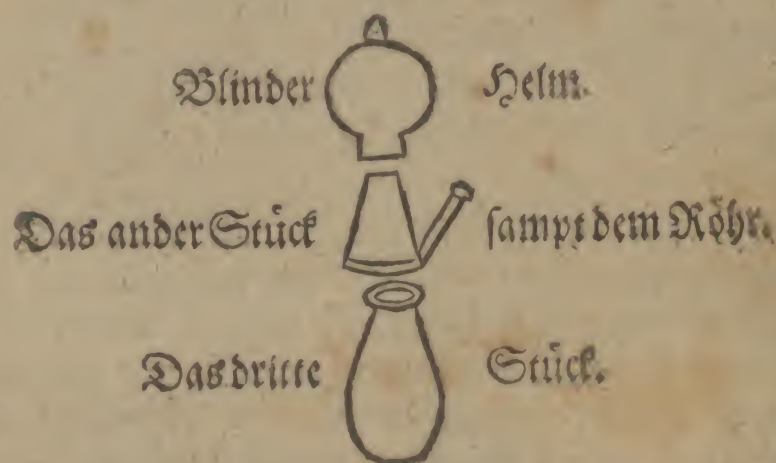 Blinder Helm.
Das ander Stück sampt dem Röhr.
Das dritte Stück.